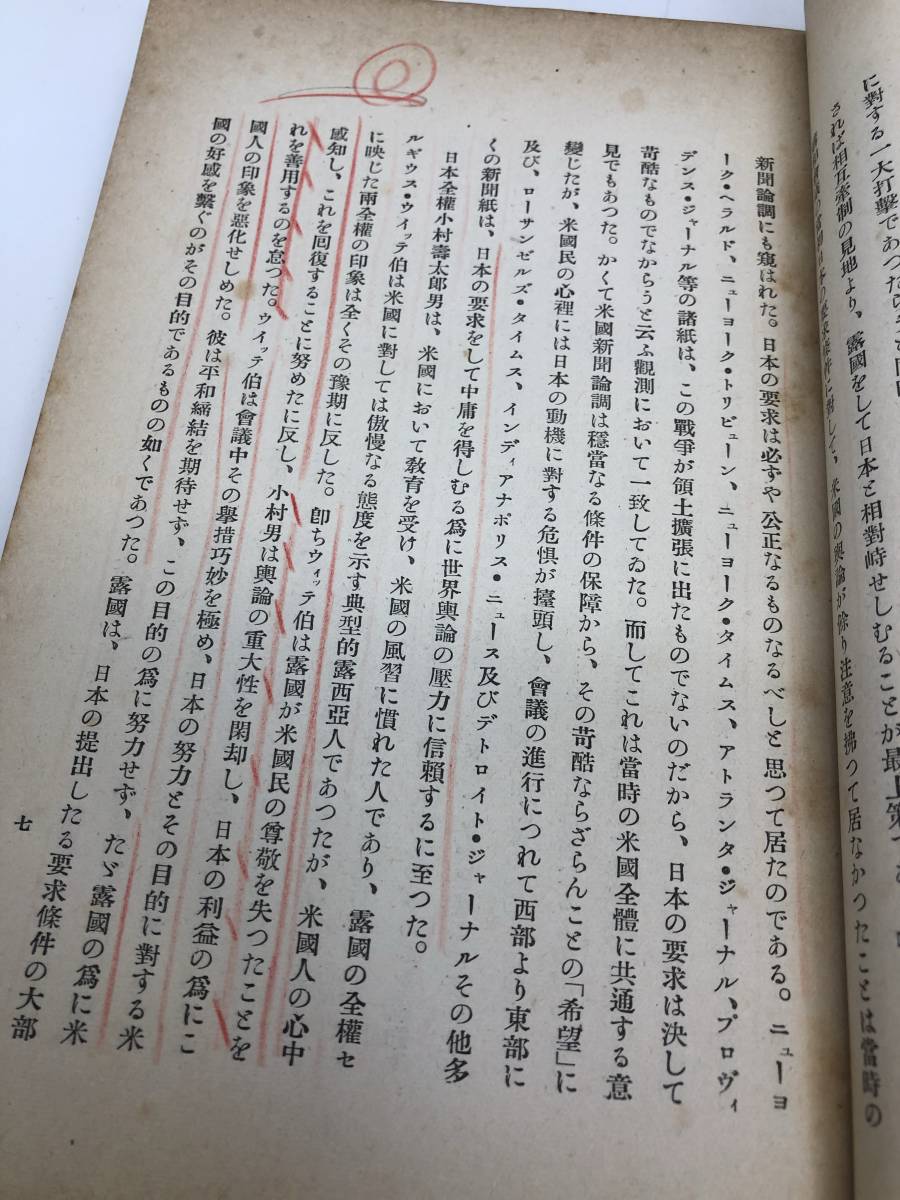 に對する一大打擊であつた
されば相互牽制の見地より、露國をして日本と相對峙せしむることが最上策
に對して、米國の輿論が餘り注意を拂つて居なかつたことは當時の
新聞論調にも窺はれた。日本の要求は必ずや公正なるものなるべしと思つて居たのである。ニューヨ
ーク・ヘラルド、ニューヨーク・トリビューン、ニューヨーク・タイムス、アトランタ・ジャーナル、プロヴィ
デンス・ジャーナル等の諸紙は、この戰爭が領土擴張に出たものでないのだから、日本の要求は決して
苛酷なものでなからうと云ふ觀測において一致してゐた。而してこれは當時の米國全體に共通する意
見でもあつた。かくて米國新聞論調は穩當なる條件の保障から、その苛酷ならざらんことの「希望」に
變じたが、米國民の心裡には日本の動機に對する危惧が擡頭し、會議の進行につれて西部より東部に
及び、ローサンゼルズ・タイムス、インディアナポリス・ニュース及びデトロイト・ジャーナルその他多
くの新聞紙は、日本の要求をして中庸を得しむる爲に世界輿論の壓力に信賴するに至つた。
日本全權小村壽太郞男は、米國において敎育を受け、米國の風習に慣れた人であり、露國の全權セ
ルギウス・ウィッテ伯は米國に對しては傲慢なる態度を示す典型的露西亞人であつたが、米國人の心中
に映じた兩全權の印象は全くその豫期に反した。卽ちウィッテ伯は露國が米國民の尊敬を失つたことを
感知し、これを囘復することに努めたに反し、小村男は輿論の重大性を閑却し、日本の利益の爲にこ
れを善用するのを怠つた。ウィッテ伯は會議中その擧措巧妙を極め、日本の努力とその目的に對する米
國人の印象を惡化せしめた。彼は平和締結を期待せず、この目的の爲に努力せず、たゞ露國の爲に米
國の好感を繫ぐのがその目的であるものの如くであつた。露國は、日本の提出したる要求條件の大部
七